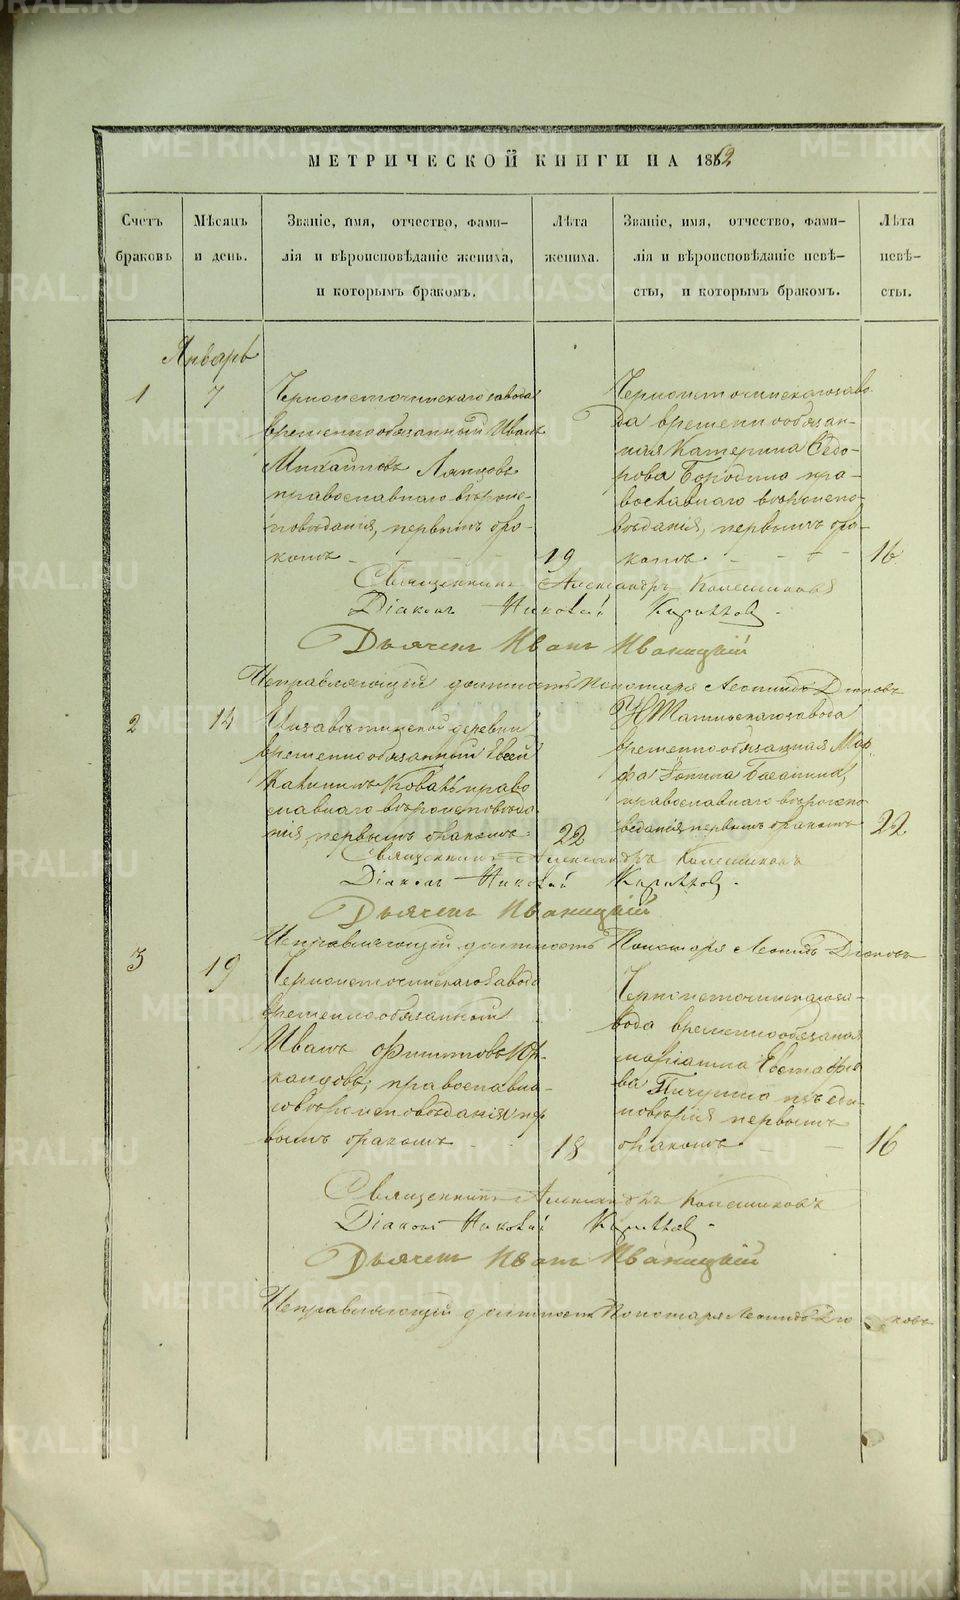 МЕТРИЧЕСКОЙ КНИГИ НА 1862
Счетъ браковъ
Мѣсяцъ и день.
Званіе, имя, отчество, фами-
лія и вѣроисповѣданіе жениха,
и которымъ бракомъ.
Лѣта жениха.
Званіе, имя, отчество, фами-
лія и вѣроисповѣданіе невѣ-
сты, и которымъ бракомъ.
Лѣта невѣ-
сты.
Январь
1
7
Черноисточинскаго завода
временнообязанный Иванъ
Михайловъ
православнаго вѣроис-
повѣданія, первымъ бра-
комъ
19
Черноисточинскаго заво-
да временнообязан-
ная Катерина Ѳедо-
рова Бородина пра-
вославнаго вѣроиспо-
вѣданія, первымъ бра-
комъ
16
Священникъ Александръ Колесниковъ
Діаконъ Николай
Дьячекъ Иванъ Иваницкій
Исправляющій должность Пономаря Леонидъ
2
14
Елизаветинской деревни
временнообязанный Евсей
право-
славнаго вѣроисповѣда-
нія, первымъ бракомъ
22
Н Тагильскаго завода
временнообязанная Мар-
фа
православнаго вѣроиспо-
вѣданія первымъ бракомъ
22
Священникъ Александръ Колесниковъ
Діаконъ Николай
Дьячекъ Иваницкій
Исправляющій должность Пономаря Леонидъ
3
19
Черноисточинскаго завода
временнообязанный
Иванъ Филипповъ
православна-
го вѣроисповѣданія, пер-
вымъ бракомъ
18
Черноисточинскаго за-
вода временнообязаная
Маріанна Евстафіе-
ва Пичугина изъ еди-
новѣрія первымъ
бракомъ
16
Священникъ Александръ Колесниковъ
Діаконъ Николай
Дьячекъ Иванъ Иваницкій
Исправляющій должность Пономаря Леонидъ
METRIKI.GASO-URAL.RU